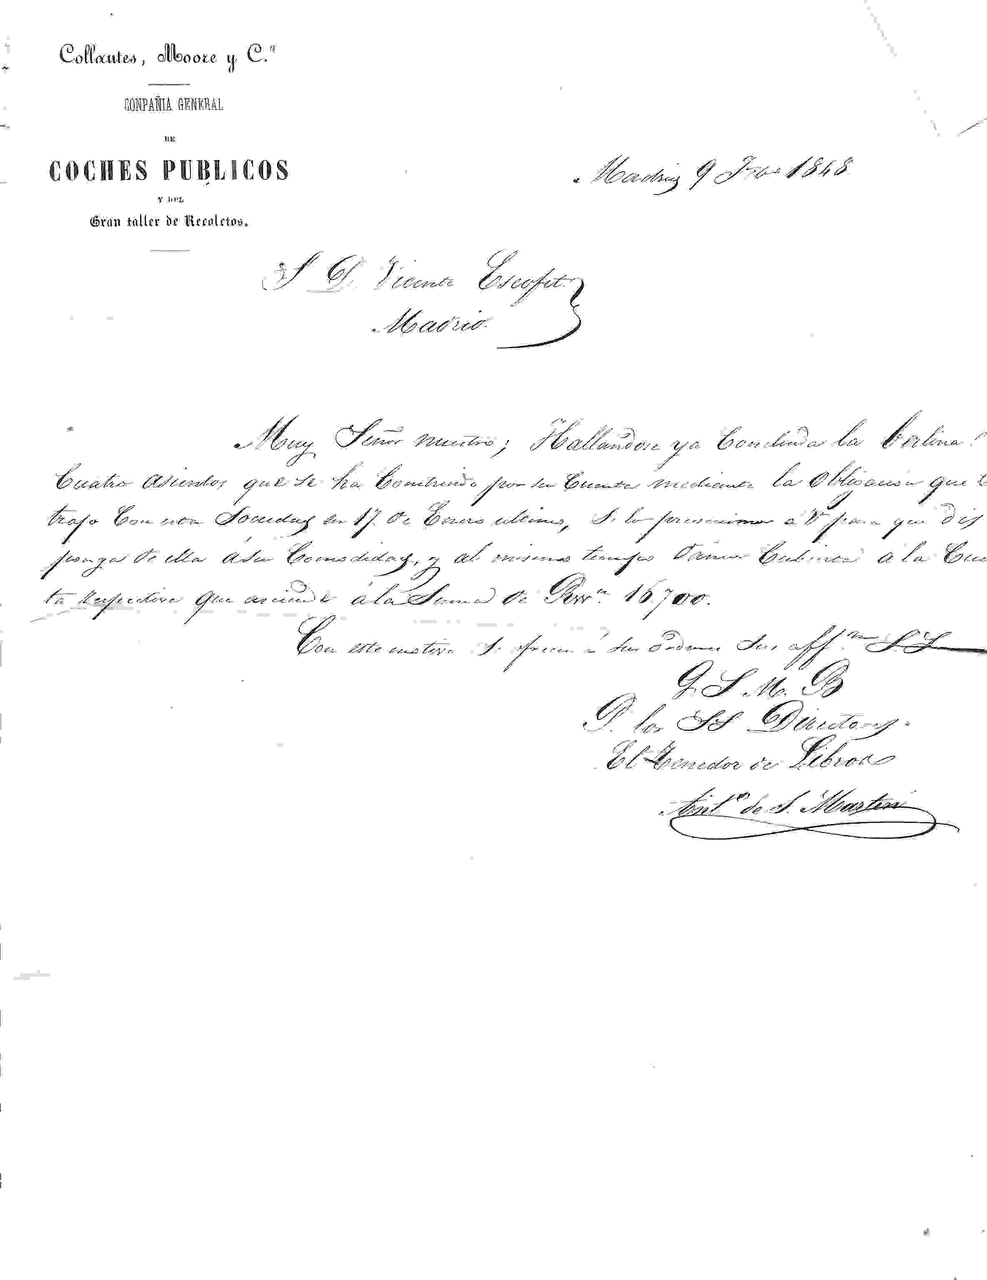 Collantes, Moore y C.ª
CONPAÑIA GENERAL
DE
COCHES PUBLICOS
Y DEL
Gran taller de Recoletos.
Madrid 9 Febo 1848
S D. Vicente Escofet
Madrid.
Muy Señor nuestro; Hallandose ya Concluida la berlina
Cuatro asientos que se ha Construido por su Cuenta mediante la Obligacion que
trajo Con esta Sociedad en 17 de Enero ultimo, se lo prevenimos a V para que dis
ponga de ella á su Comodidad, y al mismo tiempo damos Cubierta a la Cuen
ta respectiva que asciende á la Suma de Rsvn. 16700.
Con este motivo se ofrecen á sus ordenes sus aff.mos S.S.
Q S. M. B
P. los SS Directores.
El Tenedor de Libros
Ant.º de S. Martin